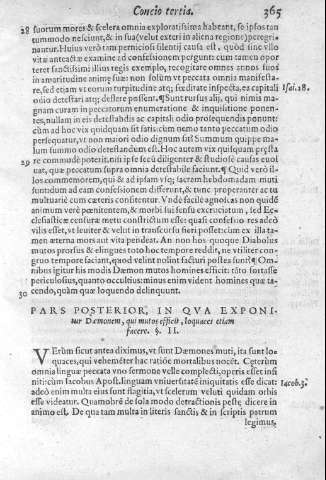 Concio tertia. 365
28 suorum mores & scelera omnia exploratissima habeant, se ipsos tan
tummodo nesciunt, & in sua (velut exteri in aliena regione) peregri-
nantur. Huius verò tam perniciosi silentij causa est, quòd sine vllo
vitæ anteactæ examine ad confessionem pergunt: cum tamen opor
teret sanctissimi illius regis exemplo, recogitare omnes annos suos
in amaritudine animę suæ: non solùm vt peccata omnia manifesta-
re, sed etiam vt eorum turpitudine atq; fœditate inspecta, ea capitali Isai. 38.
odio detestari atq; deflere possent. ¶ Sunt rursus alij, qui nimis ma-
gnam curam in peccatorum enumeratione & inquisitione ponen-
tes, nullam in eis detestandis ac capitali odio prosequendis ponunt:
cùm ad hoc vix quidquam sit satis: cum nemo tanto peccatum odio
persequatur, vt non maiori odio dignum sit: Summum quippe ma-
lum summo odio detestandum est. Hoc autem vix quisquam pręsta
29 re commodè poterit, nisi ipse secū diligenter & studiosè causas euol
uat, quæ peccatum supra omnia detestabile faciunt. ¶ Quid verò il-
los commemorem, qui & ad ipsam vsq; sacram hebdomadam muti
sunt: dum ad eam confessionem differunt, & tunc properanter ac tu
multuariè cum cæteris confitentur. Vnde facilè agnoscas non quidē
animum verè pœnitentem, & morbi sui sensu excruciatum, sed Ec-
clesiasticæ censuræ metu constrictum esse: quasi confessor is adeò
vilis esset, vt leuiter & velut in transcursu fieri posset: cum ex illa ta-
men æterna mors aut vita pendeat. An non hos quoque Diabolus
mutos prorsus & elingues toto hoc tempore reddit, ne viliter con-
gruo tempore faciant, quod velint nolint facturi postea sunt? Om-
nibus igitur his modis Dæmon mutos homines efficit: tãto fortasse
periculosius, quanto occultius: minus enim vident homines quæ ta-
30 cendo, quàm quæ loquendo delinquunt.
PARS POSTERIOR, IN QVA EXPONI-
tur Dæmonem, qui mutos efficit, loquaces etiam
facere. §. II.
VErùm sicut antea diximus, vt sunt Dæmones muti, ita sunt lo-
quaces, qui vehemēter hac ratiōe mortalibus nocēt. Cęterùm
omnia linguæ peccata vno sermone velle complecti, operis esset in-
finiti: cum Iacobus Apost. linguam vniuersitatē iniquitatis esse dicat: Iacob. 3.
adeò enim multa eius sunt flagitia, vt scelerum veluti quidam orbis
esse videatur. Quamobrē de sola modo detractionis peste dicere in
animo est. De qua tam multa in literis sanctis & in scriptis patrum
legimus,